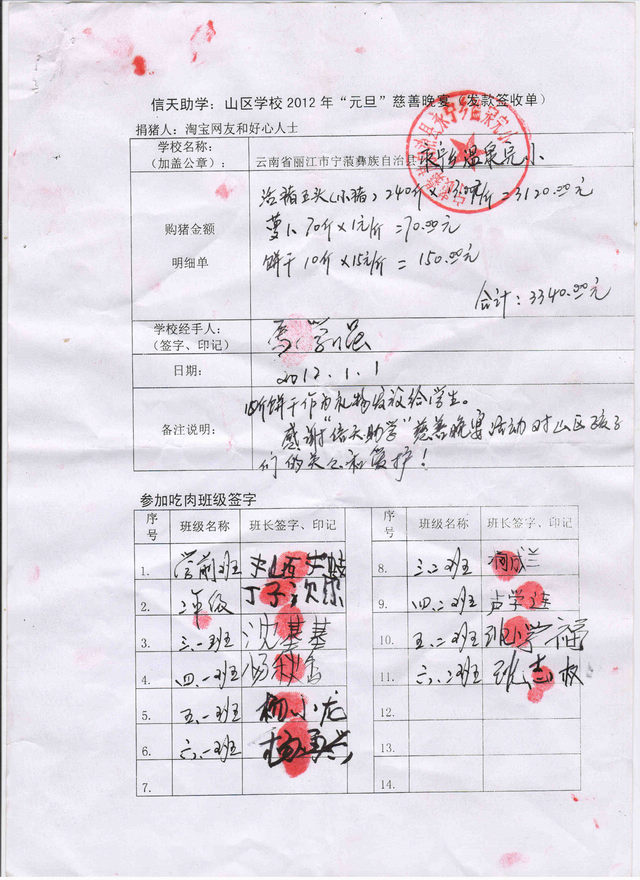 信天助学：山区学校 2012 年“元旦”慈善晚宴（发款签收单）
捐猪人：淘宝网友和好心人士
学校名称：
（加盖公章）：
云南省丽江市宁蒗彝族自治县永宁乡温泉完小
购猪金额
明细单
活猪五头（小猪）240斤×13元/斤=3120.00元
萝卜70斤×1元/斤=70.00元
饼干10斤×15元/斤=150.00元
合计：3340.00元
学校经手人：
（签字、印记）
日期：
2012.1.1
备注说明：
饼干作为礼物发放给学生。
感谢“信天助学”慈善晚宴活动对山区孩子
们的关心和爱护！
参加吃肉班级签字
序号 班级名称 班长签字、印记
1. 学前班
2. 二年级
3. 三.一班 沈基基
4. 四.一班 杨秋金
5. 五.一班 杨小龙
6. 六.一班
7.
序号 班级名称 班长签字、印记
8. 三.二班 成兰
9. 四.二班 卢学
10. 五.二班 学福
11. 六.二班 张志权
12.
13.
14.